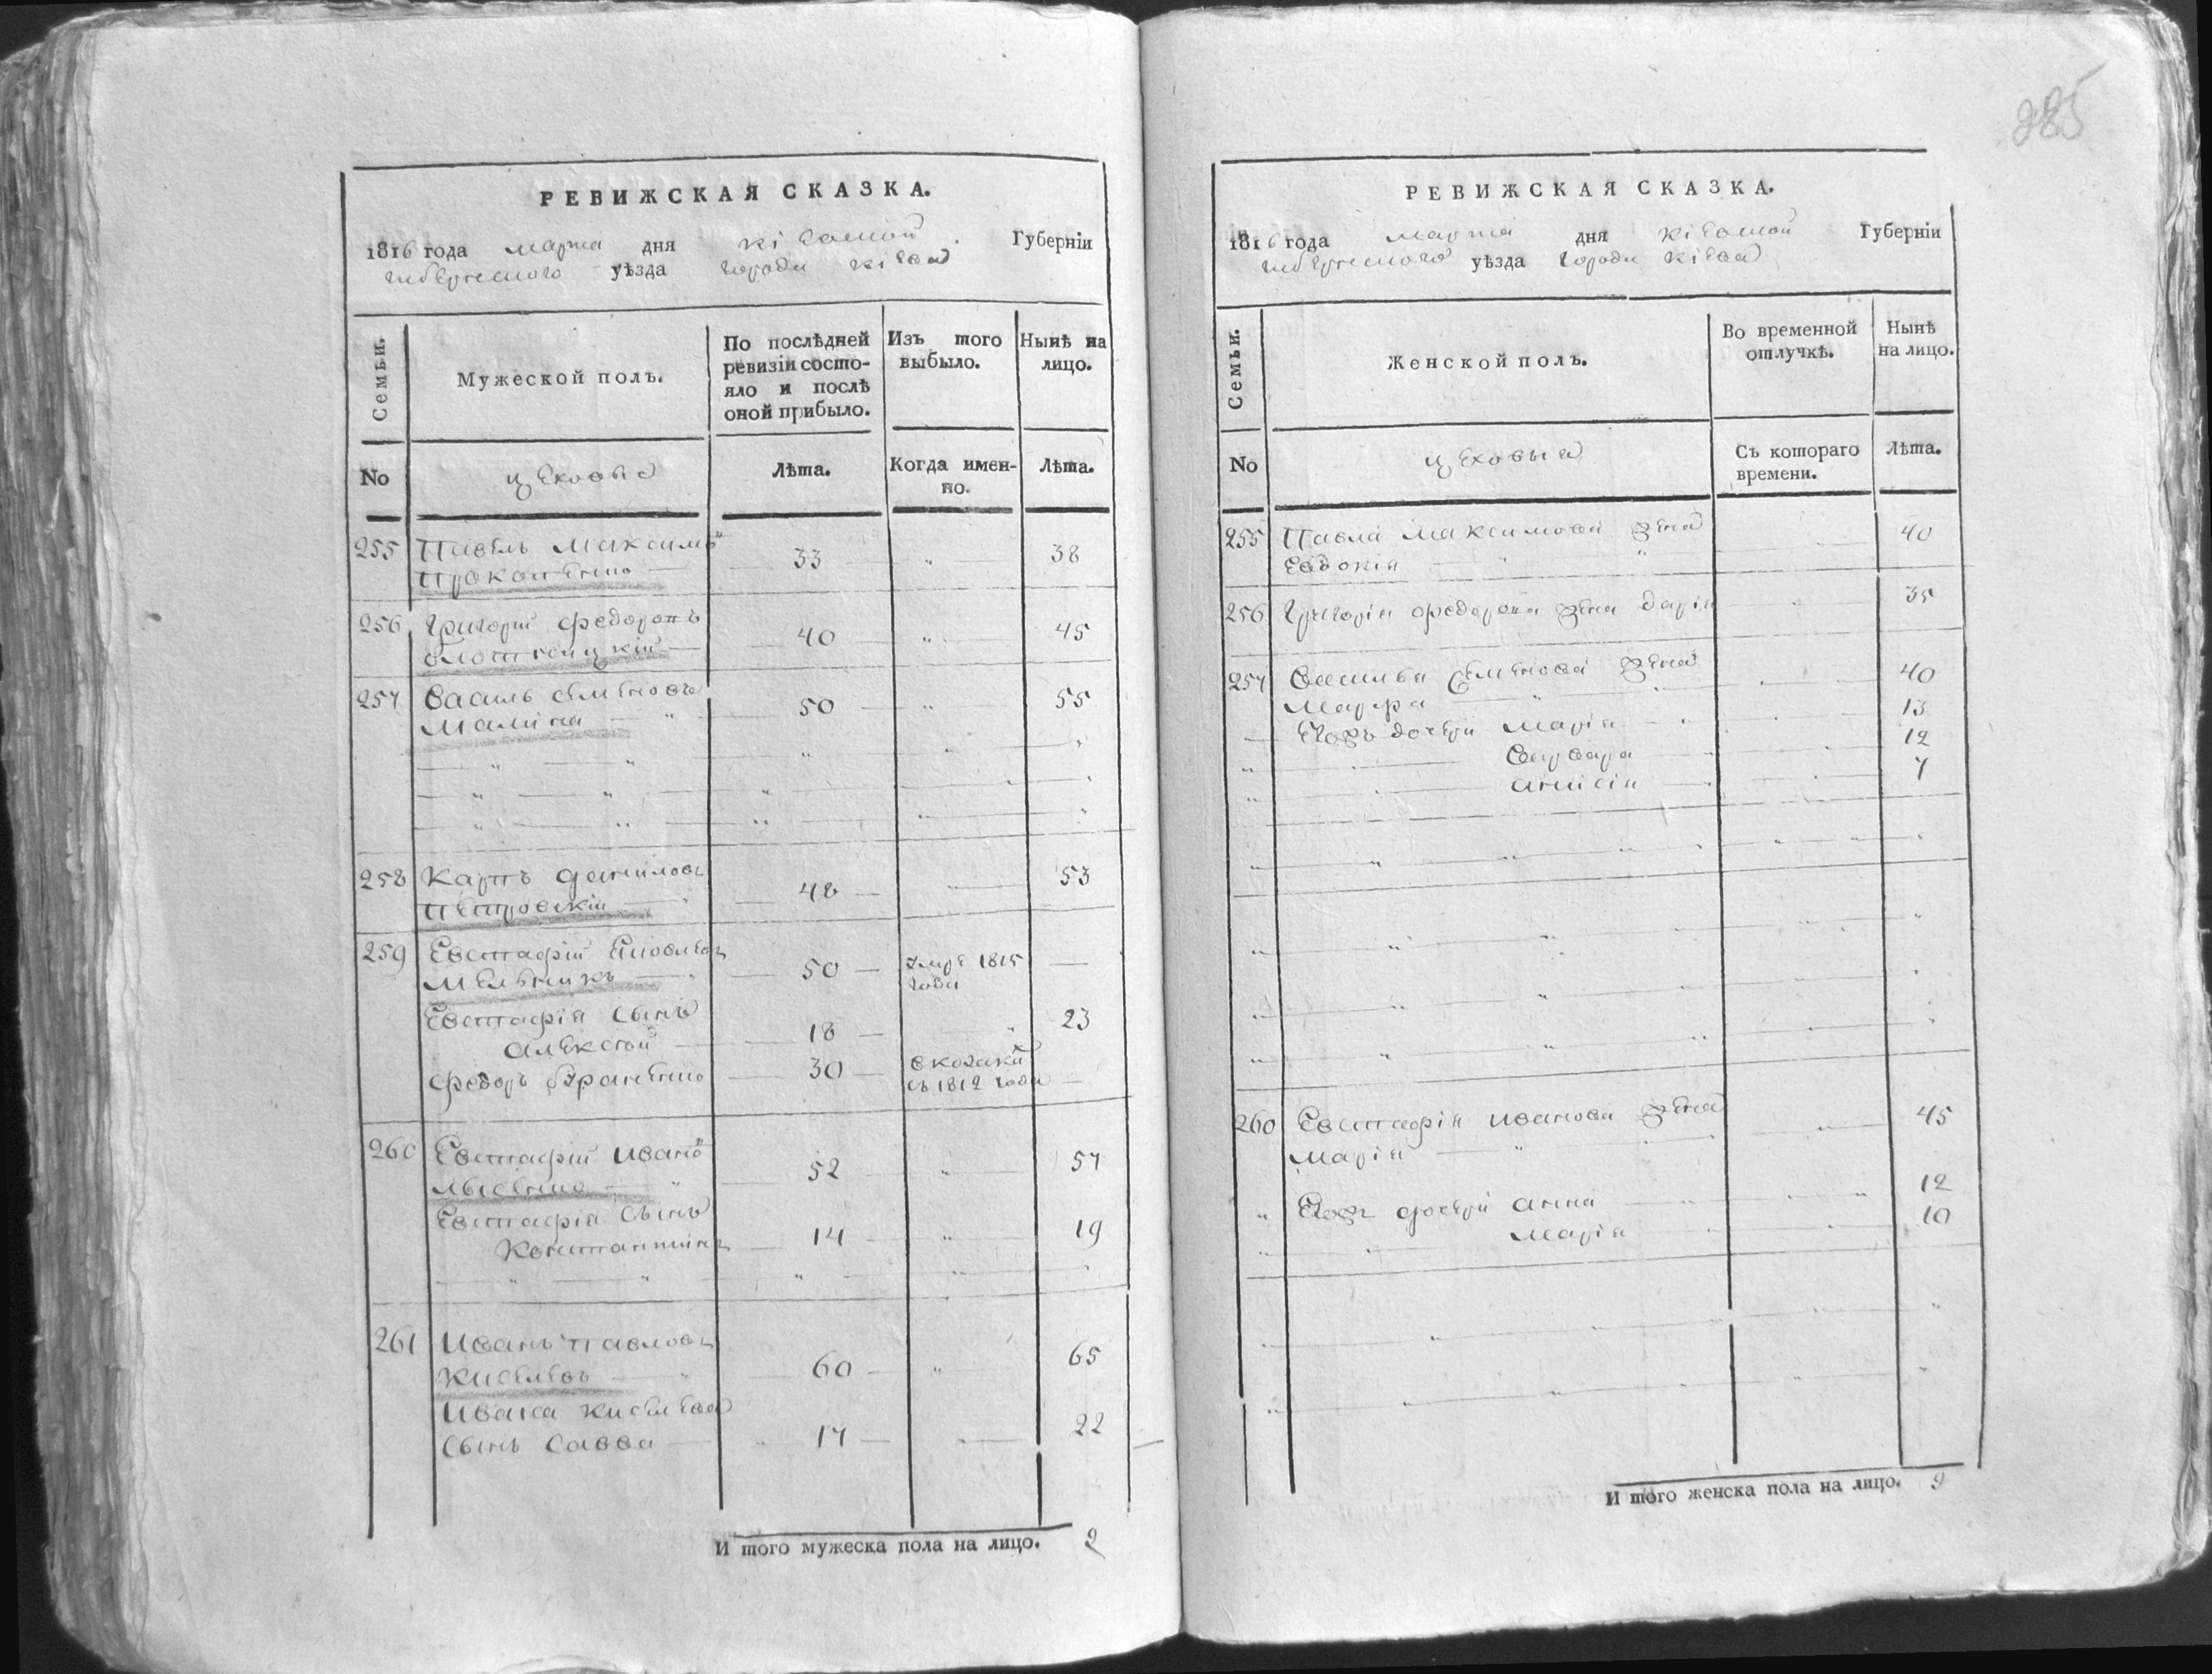 РЕВИЖСКАЯ СКАЗКА.
1816 года марта дня кіевской Губерніи
уѣзда города кіева
Семьи.
Мужеской полъ.
По послѣдней ревизіи состо-
яло и послѣ
оной прибыло.
Изъ того
выбыло.
Нынѣ на
лицо.
No
цеховые
Лѣта.
Когда имен-
но.
Лѣта.
255 Павелъ Максимовъ
Прокопенко 33 38
256 Григорій Федоровъ
40 45
257 Василь Семеновъ
Малина 50 55
258 Карпъ Даниловъ
Петровскій 48 53
259 Евстафій Яковлевъ
Мельникъ 50 умре 1815
года
Евстафія сынъ
Алексѣй 18 23
Федоръ 30 в козаки
съ 1812 года
260 Евстафій Ивановъ
Лысенко 52 57
Евстафія сынъ
Константинъ 14 19
261 Иванъ Павловъ
Киселевъ 60 65
Ивана Киселева
сынъ Савва 17 22
И того мужеска пола на лицо. 9
285
РЕВИЖСКАЯ СКАЗКА.
1816 года марта дня кіевской Губерніи
уѣзда города кіева
Семьи.
Женской полъ.
Во временной
отлучкѣ.
Нынѣ
на лицо.
No
цеховыя
Съ котораго
времени.
Лѣта.
255 Павла Максимова жена
Евдокія 40
256 Григорія Федорова жена Дарія 35
257 Василья Семенова жена
Мавра 40
Егожъ дочери Марія 13
Варвара 12
Анисія 7
260 Евстафія Иванова жена
Марія 45
Егожъ дочери Анна 12
Марія 10
И того женска пола на лицо. 9